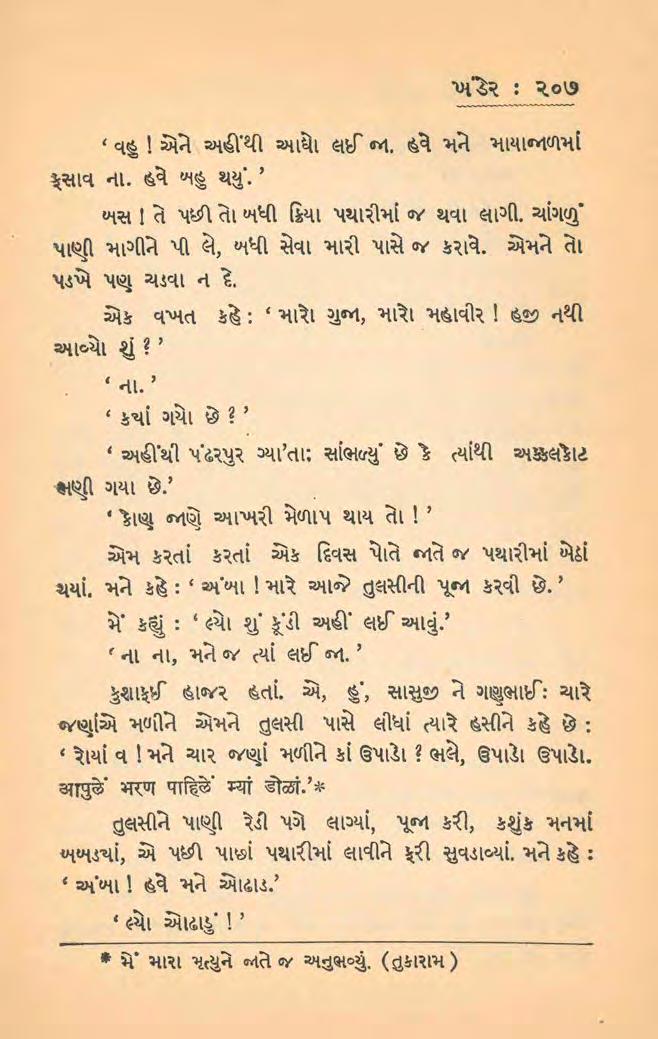 ખંડેર : ૨૦૭
‘ વહુ ! એને અહીંથી આઘો લઈ જા. હવે મને માયાજાળમાં
ફસાવ ના. હવે બહુ થયું. ’
બસ ! તે પછી તો બધી ક્રિયા પથારીમાં જ થવા લાગી. ચાંગળું
પાણી માગીને પી લે, બધી સેવા મારી પાસે જ કરાવે. એમને તો
પડખે પણ ચડવા ન દે.
એક વખત કહે : ‘ મારો ગુજા, મારો મહાવીર ! હજી નથી
આવ્યો શું ? ’
‘ ના. ’
‘ કયાં ગયો છે ? ’
‘ અહીંથી પંઢરપુર ગ્યા’તા; સાંભળ્યું છે કે ત્યાંથી અક્કલકોટ
ભણી ગયા છે.’
‘ કોણ જાણે આખરી મેળાપ થાય તો ! ’
એમ કરતાં કરતાં એક દિવસ પોતે જાતે જ પથારીમાં બેઠાં
થયાં. મને કહે : ‘ અંબા ! મારે આજે તુલસીની પૂજા કરવી છે. ’
મેં કહ્યું : ‘ લ્યો શું કૂંડી અહીં લઈ આવું.’
‘ ના ના, મને જ ત્યાં લઈ જા. ’
કુશાફઈ હાજર હતાં. એ, હું, સાસુજી ને ગણુભાઈ: ચારે
જણાંએ મળીને એમને તુલસી પાસે લીધાં ત્યારે હસીને કહે છે :
‘ રોયાં વ ! મને ચાર જણાં મળીને કાં ઉપાડો ? ભલે, ઉપાડો ઉપાડો.
आपुलें भरण पाहिलें म्यां डोळां.’*
તુલસીને પાણી રેડી પગે લાગ્યાં, પૂજા કરી, કશુંક મનમાં
બબડયાં, એ પછી પાછાં પથારીમાં લાવીને ફરી સુવડાવ્યાં. મને કહે :
‘ અંબા ! હવે મને ઓઢાડ.’
‘ લ્યો ઓઢાડું ! ’
* મેં મારા મૃત્યુને જાતે જ અનુભવ્યું. (તુકારામ)